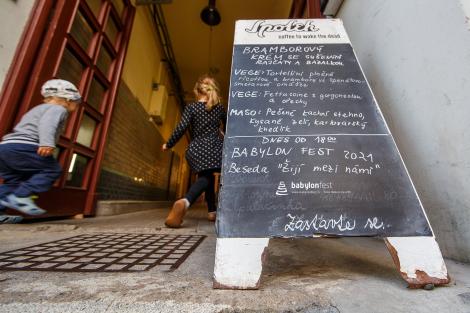 Spolek
coffee to wake the dead
BRAMBOROVÝ
KRÉM SE SUŠENÝMI
RAJČATY A BAZALKOU
VEGE: Tortellini plněné
ricottou a
omáčkou
VEGE: Fettuccine s gorgonzolou
a ořechy
MASO: Pečené kachní stehno,
kysané zelí, karlovarský
knedlík
DNES OD 18:00
BABYLON FEST 2021
Beseda "Žijí mezi námi"
babylonfest
Zastavte se.